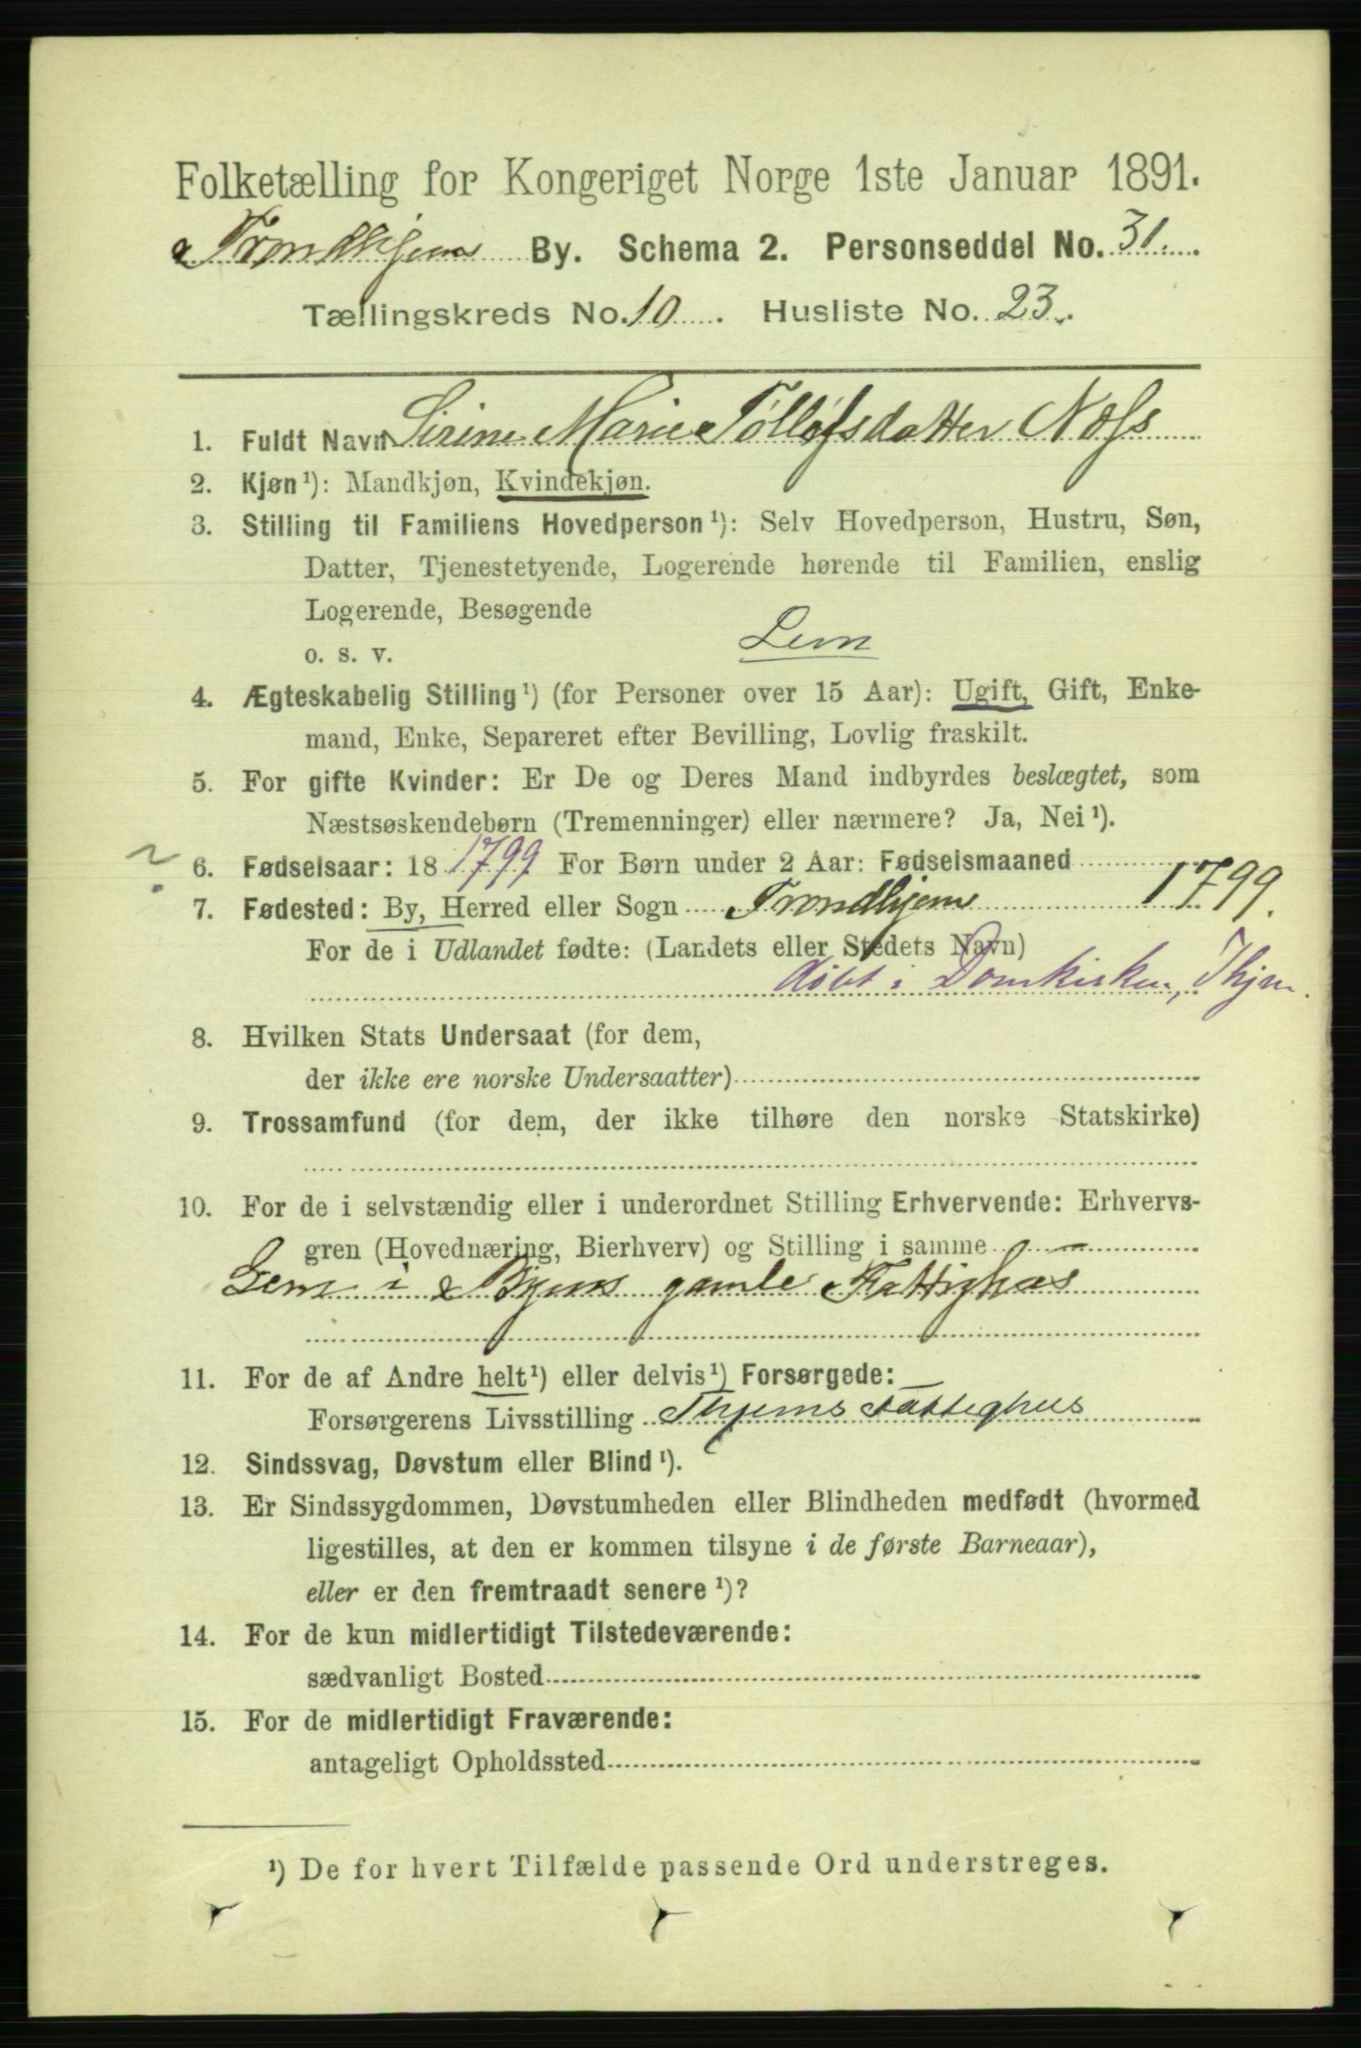 Folketælling for Kongeriget Norge 1ste Januar 1891.
Trondhjems By. Schema 2. Personseddel No. 31.
Tællingskreds No. 10. Husliste No. 23.
1. Fuldt Navn Sirine Marie Tølløfsdatter Næss
2. Kjøn¹): Mandkjøn, Kvindekjøn.
3. Stilling til Familiens Hovedperson¹): Selv Hovedperson, Hustru, Søn,
Datter, Tjenestetyende, Logerende hørende til Familien, enslig
Logerende, Besøgende
o. s. v. Lem
4. Ægteskabelig Stilling¹) (for Personer over 15 Aar): Ugift, Gift, Enke-
mand, Enke, Separeret efter Bevilling, Lovlig fraskilt.
5. For gifte Kvinder: Er De og Deres Mand indbyrdes beslægtet, som
Næstsøskendebørn (Tremenninger) eller nærmere? Ja, Nei¹).
? 6. Fødselsaar: 18 1799 For Børn under 2 Aar: Fødselsmaaned
7. Fødested: By, Herred eller Sogn Trondhjem 1799.
For de i Udlandet fødte: (Landets eller Stedets Navn)
døbt i Domkirken, Thjm.
8. Hvilken Stats Undersaat (for dem,
der ikke ere norske Undersaatter)
9. Trossamfund (for dem, der ikke tilhøre den norske Statskirke)
10. For de i selvstændig eller i underordnet Stilling Erhvervende: Erhvervs-
gren (Hovednæring, Bierhverv) og Stilling i samme —
Lem i Byens gamle Fattighus
11. For de af Andre helt¹) eller delvis¹) Forsørgede:
Forsørgerens Livsstilling Thjems Fattighus
12. Sindssvag, Døvstum eller Blind¹).
13. Er Sindssygdommen, Døvstumheden eller Blindheden medfødt (hvormed
ligestilles, at den er kommen tilsyne i de første Barneaar),
eller er den fremtraadt senere¹)?
14. For de kun midlertidigt Tilstedeværende:
sædvanligt Bosted
15. For de midlertidigt Fraværende:
antageligt Opholdssted
¹) De for hvert Tilfælde passende Ord understreges.